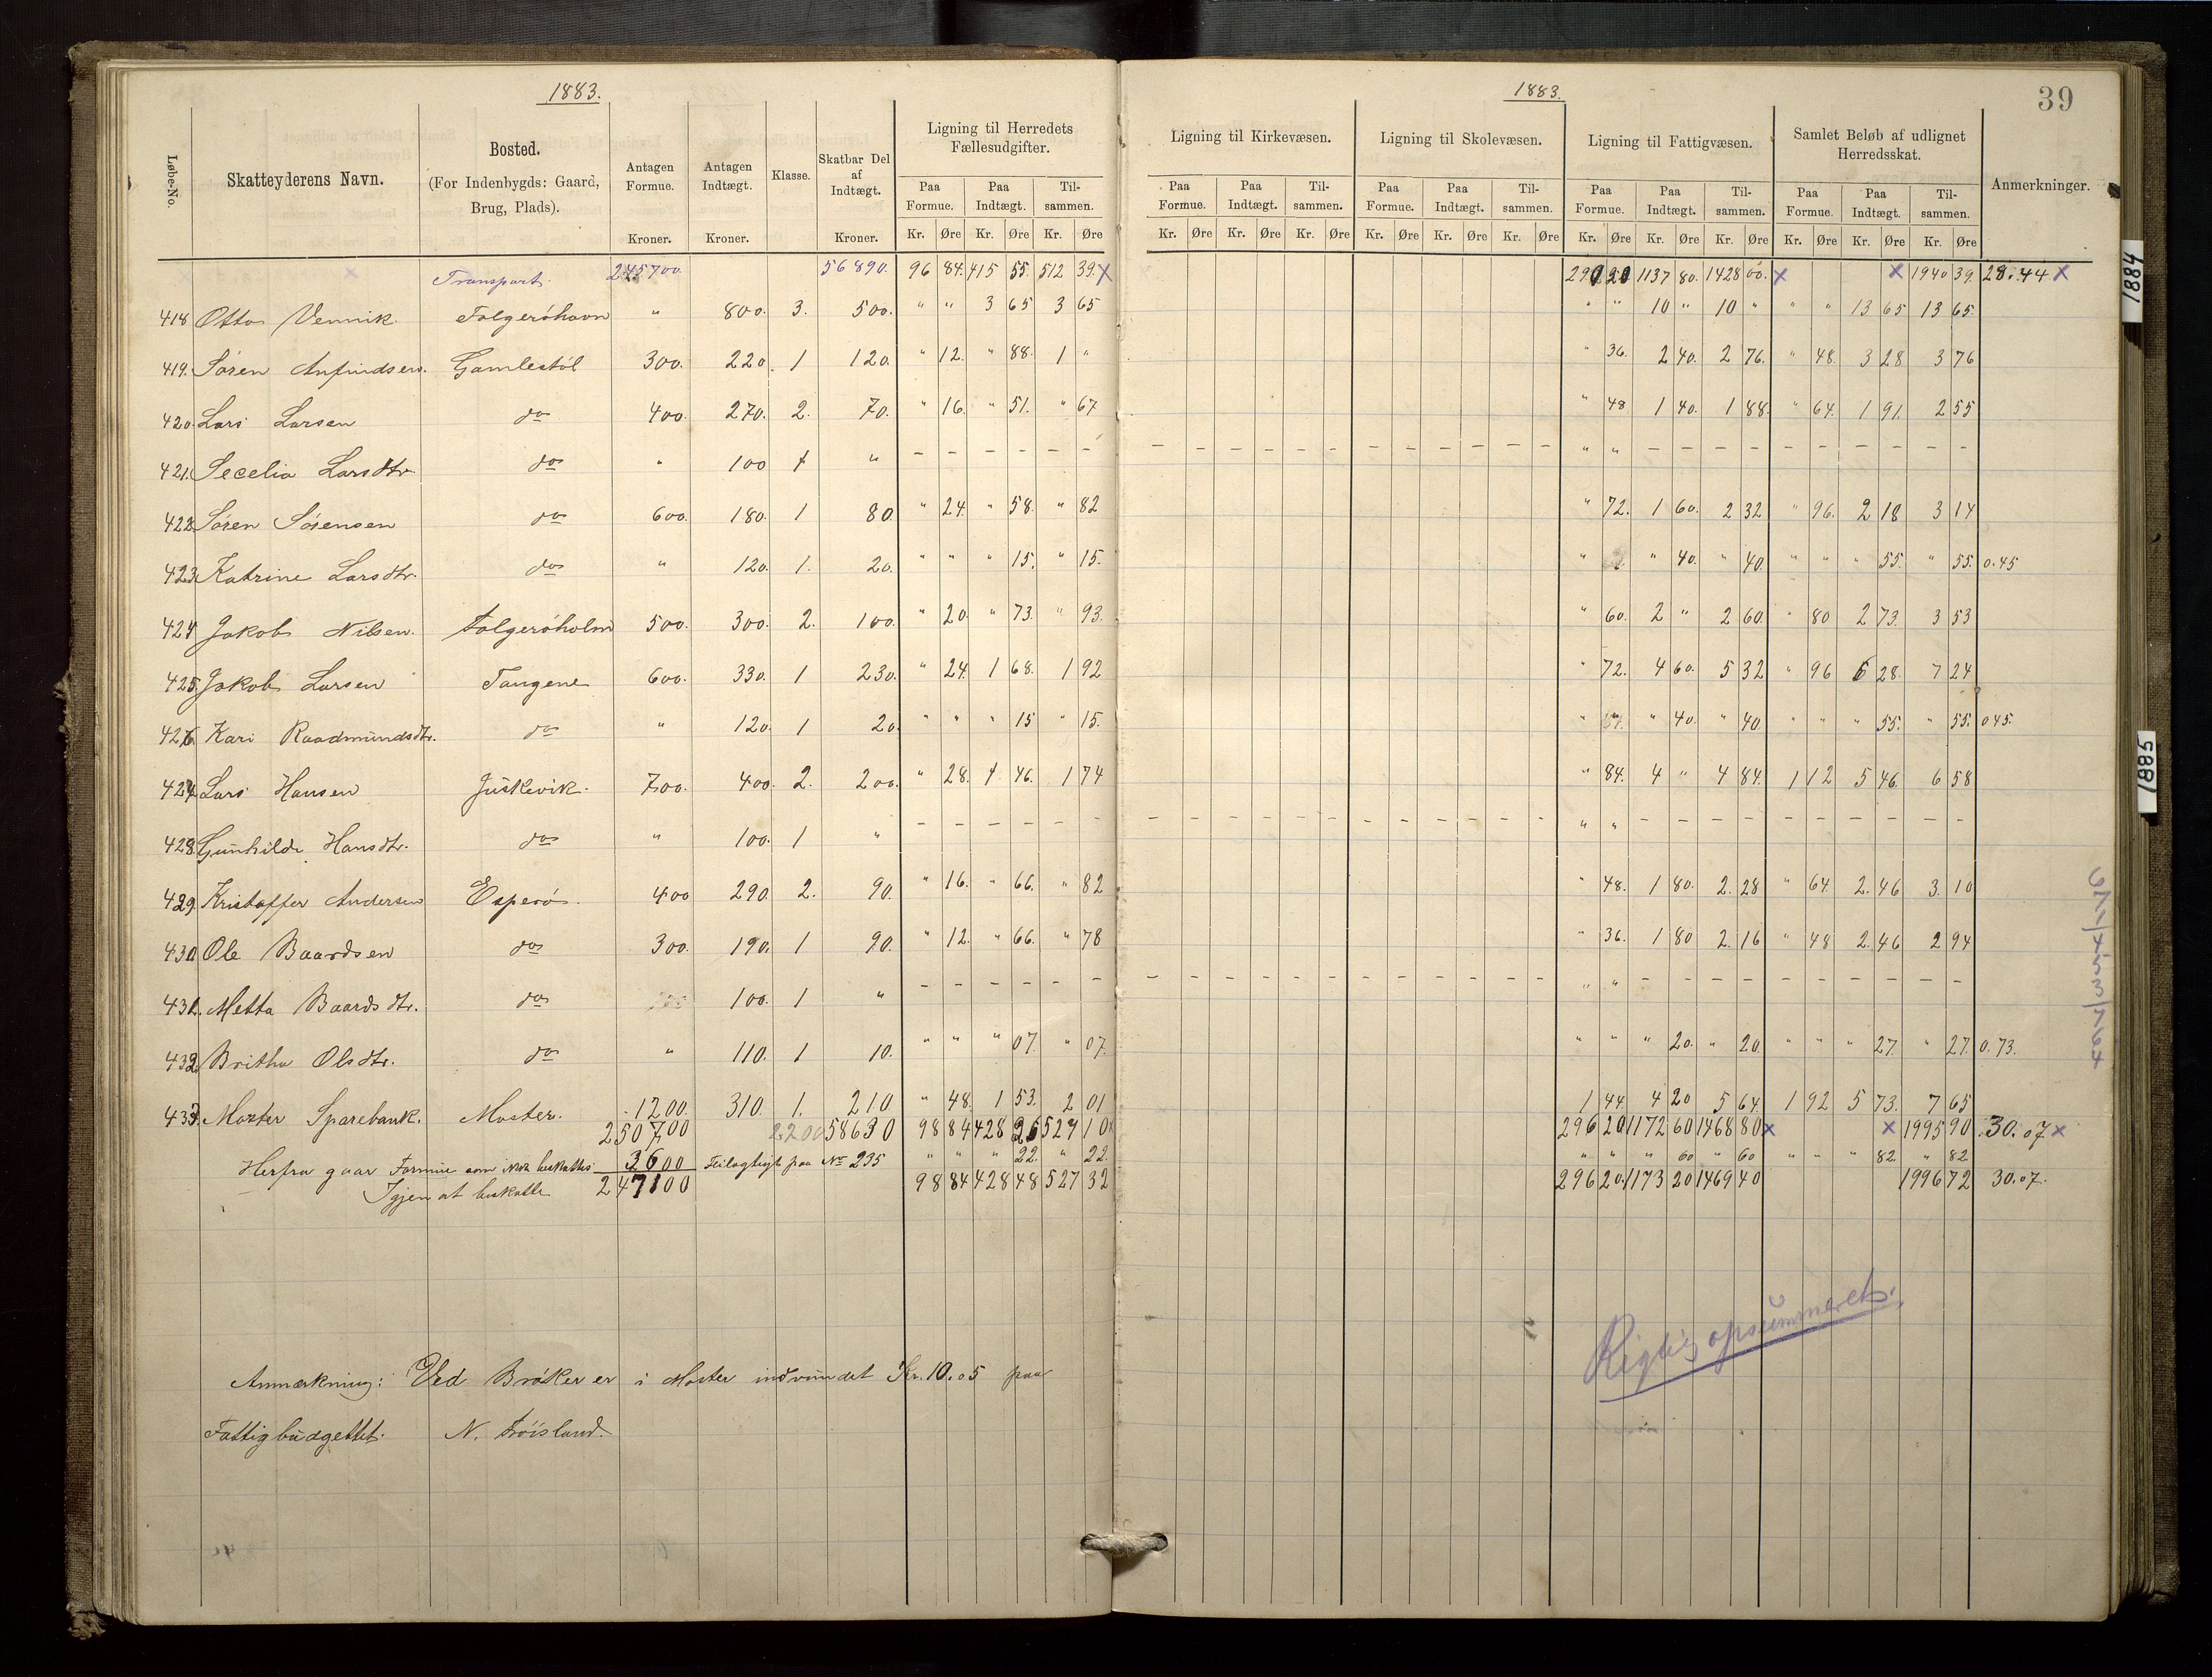 1883. 1883. 39
Løbe-No. Skatteyderens Navn. Bosted. (For Indenbygds: Gaard, Brug, Plads). Antagen Formue. Kroner. Antagen Indtægt. Kroner. Klasse. Skatbar Del af Indtægt. Kroner. Ligning til Herredets Fællesudgifter. Ligning til Kirkevæsen. Ligning til Skolevæsen. Ligning til Fattigvæsen. Samlet Beløb af udlignet Herredsskat. Anmerkninger.
Paa Formue. Paa Indtægt. Til-sammen. Paa Formue. Paa Indtægt. Til-sammen. Paa Formue. Paa Indtægt. Til-sammen. Paa Formue. Paa Indtægt. Til-sammen. Paa Formue. Paa Indtægt. Til-sammen.
Kr. Øre Kr. Øre Kr. Øre Kr. Øre Kr. Øre Kr. Øre Kr. Øre Kr. Øre Kr. Øre Kr. Øre Kr. Øre Kr. Øre Kr. Øre Kr. Øre Kr. Øre
Transport. 245700. 56890. 96 84. 415 55. 512 39. x 290 20 1137 80. 1428 00. x x 1940 39. 28.44 x
418 Otto Vennik. Folgeröhavn " 800. 3. 500. " " 3 65 3 65 " " 10 " 10 " " " 13 65 13 65.
419. Sören Anfindsen. Gamlestöl 300. 220. 1 120. " 12. " 88. 1 " " 36. 2 40. 2 76. " 48. 3 28 3 76
420. Lars Larsen do 400. 270. 2. 70. " 16. " 51. " 67 " 48 1 40. 1 88. " 64. 1 91. 2 55
421. Secelia Larsdtr. do " 100 1 " – – – – – – – – – – – – – – – – – – " " – – – – – – – – – –
422 Sören Sörensen do 600. 180. 1 80. " 24. " 58. " 82 " 72. 1 60. 2 32 " 96. 2 18 3 14
423. Katrine Larsdtr. do " 120. 1. 20. " " " 15. " 15. " " 40. " 40. " " " 55. " 55. 0.45
424 Jakob Nilsen. Folgeröholm 500. 300. 2. 100. " 20. " 73. " 93. " 60. 2 " 2 60. " 80 2 73. 3 53
425. Jakob Larsen Tangene 600. 330. 1 230. " 24. 1 68. 1 92 " 72. 4 60. 5 32 " 96 6 28. 7 24
426 Kari Raadmundsdtr. do " 120. 1 20. " " " 15 " 15. " " 40. " 40. " " " 55. " 55. 045.
427. Lars Hansen Juskevik. 700. 400. 2. 200. " 28. 1 46. 1 74 " 84. 4 " 4 84. 1 12 5 46. 6 58
428. Gunhilde Hansdtr. do " 100. 1 " – – – – – – – – – – – – – – – – – – " " – – – – – – – – – –
429. Kristoffer Andersen Esperö. 400 290. 2. 90. " 16. " 66. " 82 " 48. 1 80. 2. 28 " 64. 2. 46 3. 10
430 Ole Baardsen do 300. 190. 1 90. " 12. " 66. " 78 " 36. 1 80 2. 16 " 48 2. 46 2 94
431. Metta Baardsdtr. do 100. 1 " – – – – – – – – – – – – – – – – – – " " – – – – – – – – – –
432. Britha Olsdtr. do " 110. 1 10. " " " 07. " 07. " " " 20. " 20. " " " 27. " 27. 0.73.
433. Moster Sparebank. Moster. 1200. 310. 1. 210 " 48. 1 53. 2 01 1 44. 4 20 5 64. 1 92 5 73. 7 65
250700 2200 58630 98 84 428 26 527 10 x 296 20 1172 60 1468 80 x x 1995 90 30.07 x
Herfra gaar Formue som ikke beskattes 3600 Feilagtigt paa No 235 " " " 22. " 22. " " " 60 " 60 " " " 82 " 82
Igjen at beskatte 247100 98 84 428 48 527 32 296 20. 1173 20 1469 40 1996 72 30.07.
Rigtig opsummeret.
Anmærkning: Ved Bröker er i Moster indvundet Kr. 10.05 paa
Fattigbudgettet. N.
1884
1885